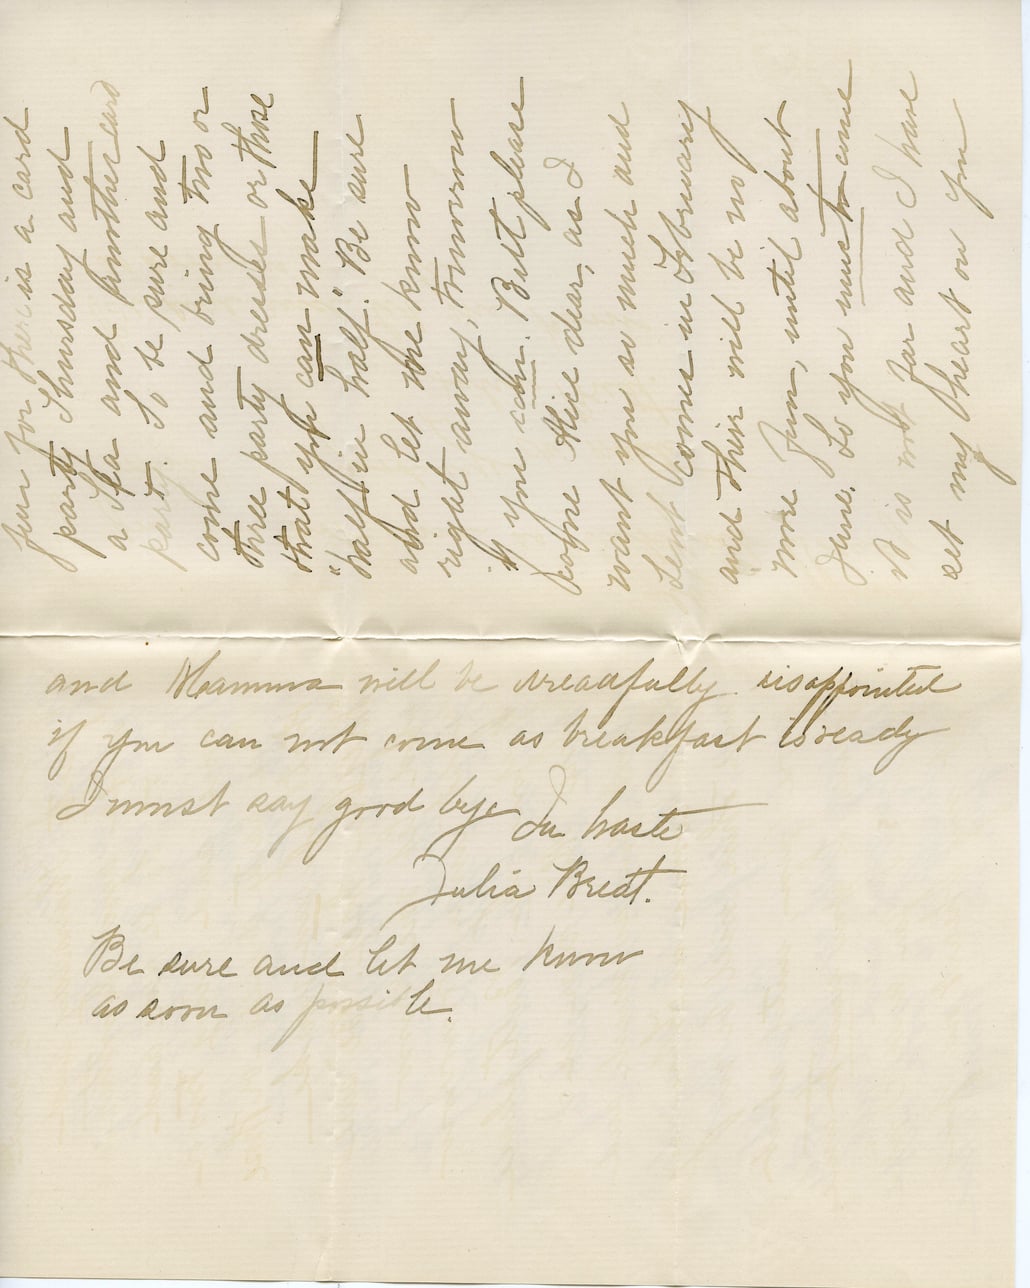 fun for there is a card
party Thursday and
a Tea and another card
party. So be sure and
come and bring two or
three party dresses or those
that you can make
"half in half." Be sure
and let me know
right away, tomorrow
if you can. But please
come Alice dear, as I
want you so much and
Lent comes in February
and there will be no
more fun, until about
June. So you must come
it is not far and I have
set my heart on you
and Mamma will be dreadfully disappointed
if you can not come as breakfast is ready
I must say good bye
In haste
Julia Bredt.
Be sure and let me know
as soon as possible.